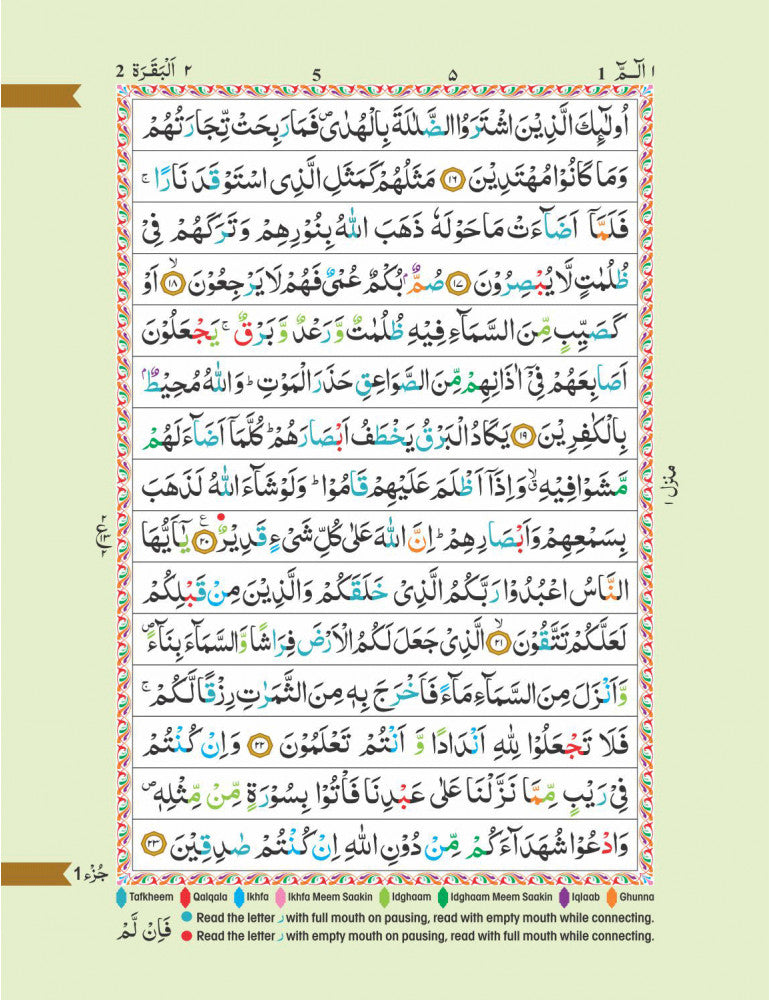 2 اَلْبَقَرَة ٢
5 ۵
1 الٓـمّٓ ١
اُولٰٓئِكَ الَّذِيْنَ اشْتَرَوُا الضَّلٰلَةَ بِالْهُدٰى ۪ فَمَا رَبِحَتْ تِّجَارَتُهُمْ
وَمَا كَانُوْا مُهْتَدِيْنَ ۝١٦ مَثَلُهُمْ كَمَثَلِ الَّذِى اسْتَوْقَدَ نَارًا ۚ
فَلَمَّآ اَضَآءَتْ مَا حَوْلَهٗ ذَهَبَ اللّٰهُ بِنُوْرِهِمْ وَتَرَكَهُمْ فِىْ
ظُلُمٰتٍ لَّا يُبْصِرُوْنَ ۝١٧ صُمٌّۢ بُكْمٌ عُمْىٌ فَهُمْ لَا يَرْجِعُوْنَ ۝١٨ۙ اَوْ
كَصَيِّبٍ مِّنَ السَّمَآءِ فِيْهِ ظُلُمٰتٌ وَّرَعْدٌ وَّبَرْقٌ ۚ يَجْعَلُوْنَ
اَصَابِعَهُمْ فِىْٓ اٰذَانِهِمْ مِّنَ الصَّوَاعِقِ حَذَرَ الْمَوْتِ ؕ وَاللّٰهُ مُحِيْطٌۢ
بِالْكٰفِرِيْنَ ۝١٩ يَكَادُ الْبَرْقُ يَخْطَفُ اَبْصَارَهُمْ ؕ كُلَّمَآ اَضَآءَ لَهُمْ
مَّشَوْا فِيْهِ ۙ وَاِذَآ اَظْلَمَ عَلَيْهِمْ قَامُوْا ؕ وَلَوْ شَآءَ اللّٰهُ لَذَهَبَ
بِسَمْعِهِمْ وَاَبْصَارِهِمْ ؕ اِنَّ اللّٰهَ عَلٰى كُلِّ شَىْءٍ قَدِيْرٌ ۝٢٠ يٰٓاَيُّهَا
النَّاسُ اعْبُدُوْا رَبَّكُمُ الَّذِىْ خَلَقَكُمْ وَالَّذِيْنَ مِنْ قَبْلِكُمْ
لَعَلَّكُمْ تَتَّقُوْنَ ۝٢١ۙ الَّذِىْ جَعَلَ لَكُمُ الْاَرْضَ فِرَاشًا وَّالسَّمَآءَ بِنَآءً ۪
وَّاَنْزَلَ مِنَ السَّمَآءِ مَآءً فَاَخْرَجَ بِهٖ مِنَ الثَّمَرٰتِ رِزْقًا لَّكُمْ ۚ
فَلَا تَجْعَلُوْا لِلّٰهِ اَنْدَادًا وَّ اَنْتُمْ تَعْلَمُوْنَ ۝٢٢ وَاِنْ كُنْتُمْ
فِىْ رَيْبٍ مِّمَّا نَزَّلْنَا عَلٰى عَبْدِنَا فَاْتُوْا بِسُوْرَةٍ مِّنْ مِّثْلِهٖ ۪
وَادْعُوْا شُهَدَآءَكُمْ مِّنْ دُوْنِ اللّٰهِ اِنْ كُنْتُمْ صٰدِقِيْنَ ۝٢٣
منزل ١
٢ ع ١٣ ٢
جُزْء 1
Tafkheem Qalqala Ikhfa Ikhfa Meem Saakin Idghaam Idghaam Meem Saakin Iqlaab Ghunna
Read the letter ر with full mouth on pausing, read with empty mouth while connecting.
Read the letter ر with empty mouth on pausing, read with full mouth while connecting.
فَاِنْ لَّمْ